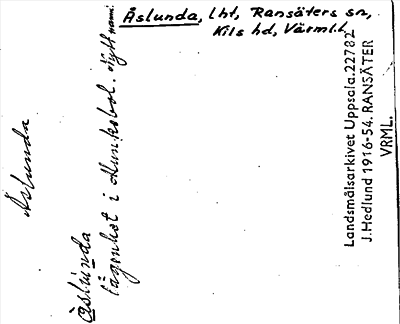 Åslunda, lht, Ransäters sn,
Kils hd, Värml. l.
Åslunda
Åslunda
lägenhet i Munkebol. Nytt namn.
Landsmålsarkivet Uppsala. 22782
J. Hedlund 1916-54. RANSÄTER
VRML.